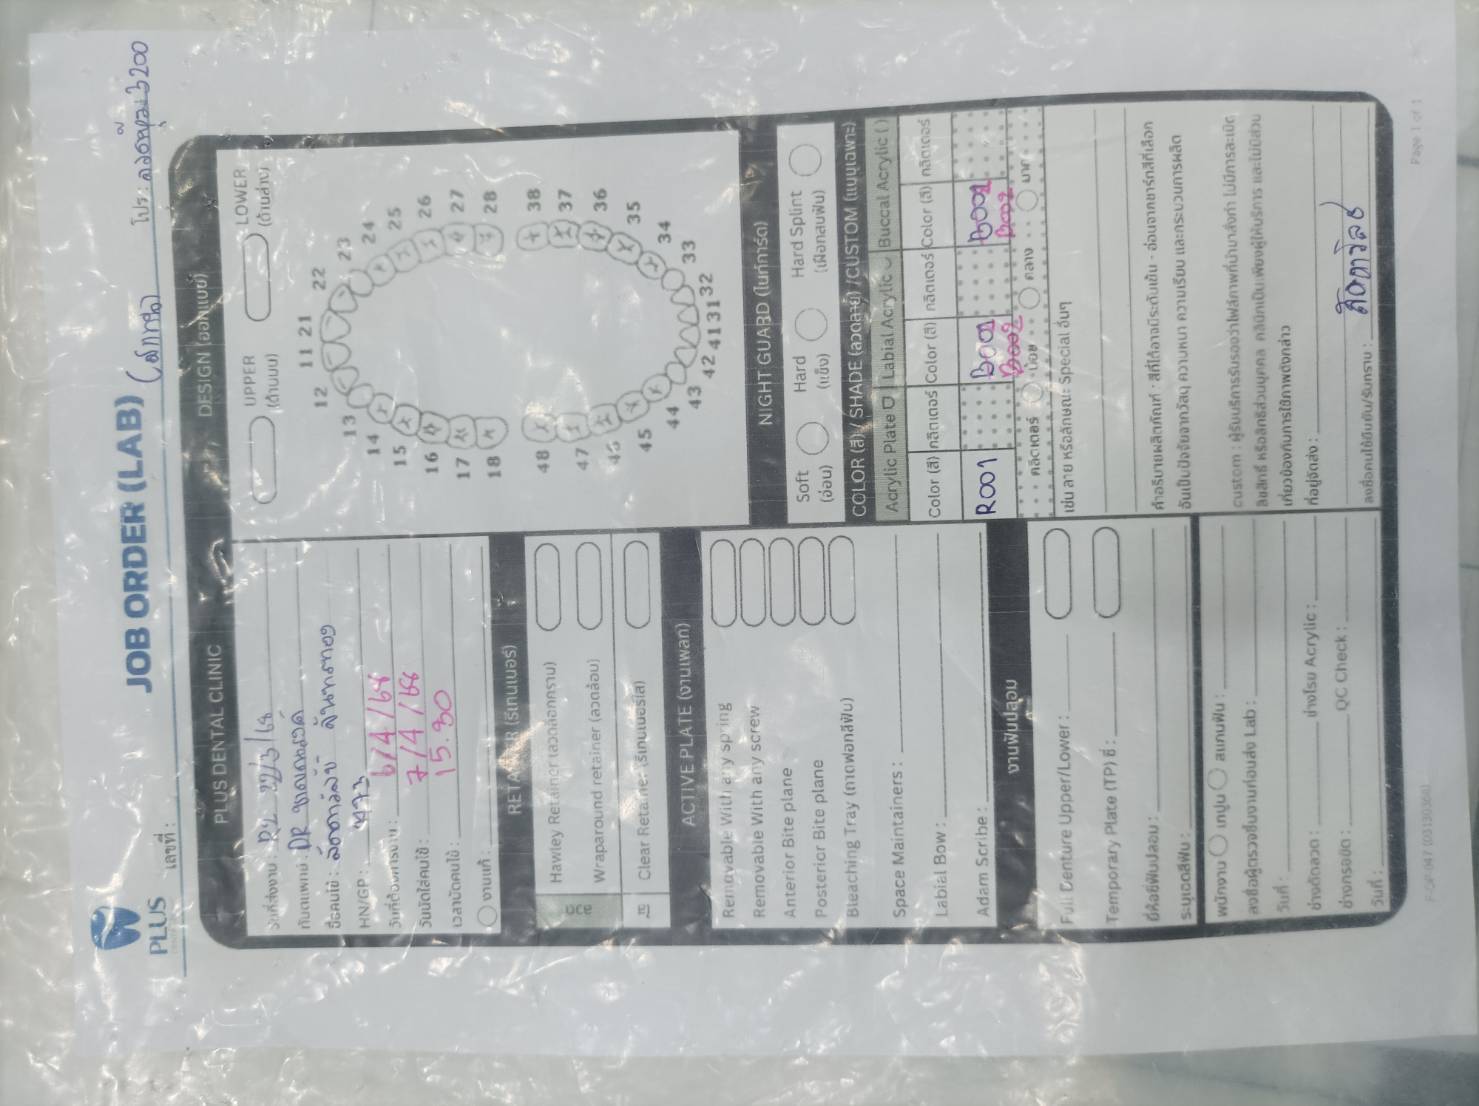 PLUS
JOB ORDER (LAB)
เลขที่ :
PLUS DENTAL CLINIC
วันที่ส่งงาน :
ทันตแพทย์ : DR
ชื่อคนไข้ :
HN/GP :
วันที่ต้องการงาน : 6/4/68
วันนัดใส่คนไข้ : 7/4/68
เวลานัดคนไข้ : 15.30
งานแก้ :
RETAINER (รีเทนเนอร์)
Hawley Retainer (ลวดล็อกกราม)
Wraparound retainer (ลวดล้อม)
Clear Retainer (รีเทนเนอร์ใส)
ACTIVE PLATE (งานเพลท)
Removable With any spring
Removable With any screw
Anterior Bite plane
Posterior Bite plane
Bleaching Tray (ถาดฟอกสีฟัน)
Space Maintainers :
Labial Bow :
Adam Scribe :
งานฟันปลอม
Full Denture Upper/Lower :
Temporary Plate (TP) ซี่ :
ยี่ห้อซี่ฟันปลอม :
ระบุเฉดสีฟัน :
พนักงาน เทปูน สแกนฟัน :
ลงชื่อผู้ตรวจชิ้นงานก่อนส่ง Lab :
วันที่ :
ช่างดัดลวด : ช่างโรย Acrylic :
ช่างกรอขัด : QC Check :
วันที่ :
DESIGN (ออกแบบ)
UPPER LOWER
(ด้านบน) (ด้านล่าง)
12 11 21 22
13 23
14 24
15 25
16 26
17 27
18 28
48 38
47 37
46 36
45 35
44 34
43 33
42 41 31 32
NIGHT GUARD (ไนท์การ์ด)
Soft Hard Hard Splint
(อ่อน) (แข็ง) (เฝือกสบฟัน)
COLOR (สี) / SHADE (ลวดลาย) / CUSTOM (แบบเฉพาะ)
Acrylic Plate Labial Acrylic Buccal Acrylic ( )
Color (สี) กลิตเตอร์ Color (สี) กลิตเตอร์ Color (สี) กลิตเตอร์
R001 B001 B001
B002 B002
กลิตเตอร์ น้อย กลาง มาก
เช่น ลาย หรือลักษณะ Special อื่นๆ
คำอธิบายผลิตภัณฑ์ : สีที่ได้อาจมีระดับเข้ม - อ่อนจากชาร์ทสีที่เลือก
อันเป็นปัจจัยจากวัสดุ ความหนา ความเรียบ และกระบวนการผลิต
custom : ผู้รับบริการรับรองว่าไฟล์ภาพที่นำมาสั่งทำ ไม่มีการละเมิด
ลิขสิทธิ์ หรือสิทธิส่วนบุคคล คลินิกเป็นเพียงผู้ให้บริการ และไม่มีส่วน
เกี่ยวข้องกับการใช้ภาพดังกล่าว
ที่อยู่จัดส่ง :
ลงชื่อคนไข้ยืนยัน/รับทราบ :
Page 1 of 1